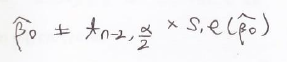 β̂₀ ± t_{n-2, α/2} × s.e(β̂₀)